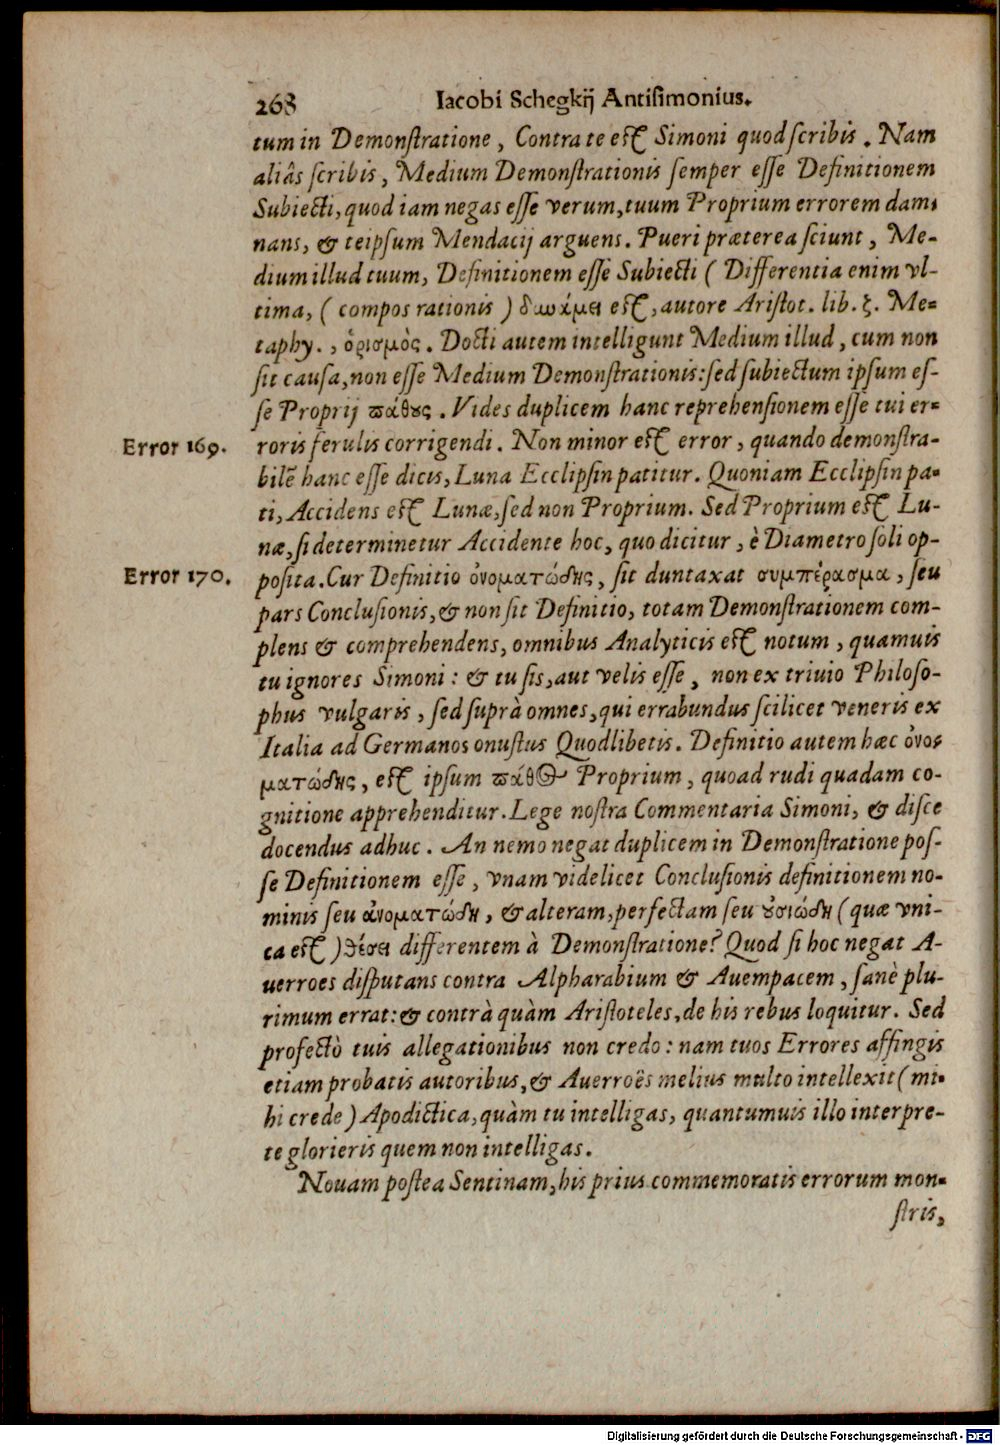 268 Iacobi Schegkij Antisimonius.
tum in Demonstratione, Contra te est Simoni quod scribis. Nam
aliâs scribis, Medium Demonstrationis semper esse Definitionem
Subiecti, quod iam negas esse verum, tuum Proprium errorem dam-
nans, & teipsum Mendacij arguens. Pueri præterea sciunt, Me-
dium illud tuum, Definitionem esse Subiecti (Differentia enim vl-
tima, (compos rationis) δυνάμει est, autore Aristot. lib. ζ. Me-
taphy., ὁρισμὸς. Docti autem intelligunt Medium illud, cum non
sit causa, non esse Medium Demonstrationis: sed subiectum ipsum es-
se Proprij πάθους. Vides duplicem hanc reprehensionem esse tui er-
Error 169. roris ferulis corrigendi. Non minor est error, quando demonstra-
bilē hanc esse dicis, Luna Ecclipsin patitur. Quoniam Ecclipsin pa-
ti, Accidens est Lunæ, sed non Proprium. Sed Proprium est Lu-
næ, si determinetur Accidente hoc, quo dicitur, è Diametro soli op-
Error 170. posita. Cur Definitio ὀνοματώδης, sit duntaxat συμπέρασμα, seu
pars Conclusionis, & non sit Definitio, totam Demonstrationem com-
plens & comprehendens, omnibus Analyticis est notum, quamuis
tu ignores Simoni: & tu sis, aut velis esse, non ex triuio Philoso-
phus vulgaris, sed suprà omnes, qui errabundus scilicet veneris ex
Italia ad Germanos onustus Quodlibetis. Definitio autem hæc ὀνο-
ματώδης, est ipsum πάθος Proprium, quoad rudi quadam co-
gnitione apprehenditur. Lege nostra Commentaria Simoni, & disce
docendus adhuc. An nemo negat duplicem in Demonstratione pos-
se Definitionem esse, vnam videlicet Conclusionis definitionem no-
minis seu ἀνοματώδη, & alteram, perfectam seu οὐσιώδη (quæ vni-
ca est) θέσει differentem à Demonstratione? Quod si hoc negat A-
uerroes disputans contra Alpharabium & Auempacem, sanè plu-
rimum errat: & contrà quàm Aristoteles, de his rebus loquitur. Sed
profectò tuis allegationibus non credo: nam tuos Errores affingis
etiam probatis autoribus, & Auerroës melius multo intellexit (mi-
hi crede) Apodictica, quàm tu intelligas, quantumuis illo interpre-
te glorieris quem non intelligas.
Nouam postea Sentinam, his prius commemoratis errorum mon-
stris,
Digitalisierung gefördert durch die Deutsche Forschungsgemeinschaft - DFG